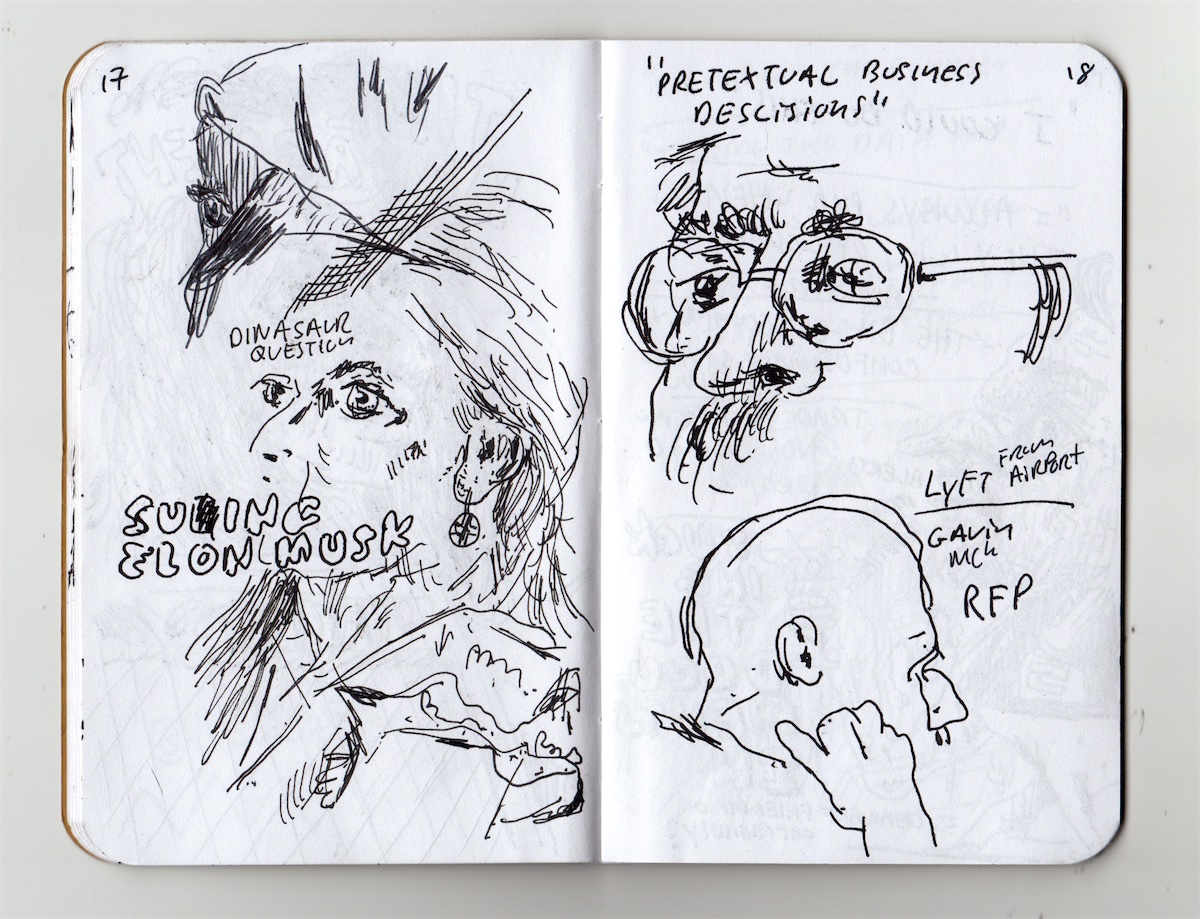 17
DINASAUR
QUESTION
SUING
ELON MUSK
"PRETEXTUAL BUSINESS
DESCISIONS"
18
LYFT FROM
AIRPORT
GAVIN
RFP